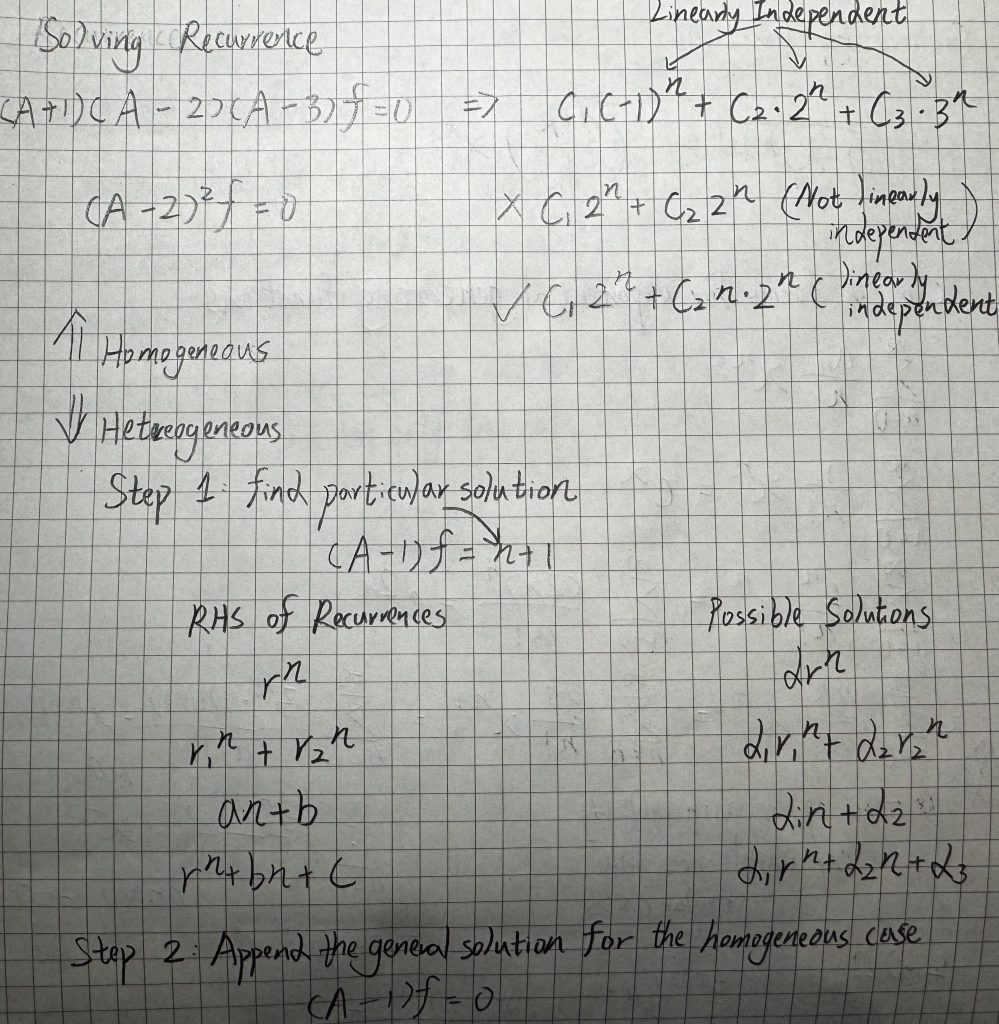 Linearly Independent
Solving Recurrence
(A+1)(A-2)(A-3)f=0 => C₁(-1)ⁿ + C₂·2ⁿ + C₃·3ⁿ
(A-2)²f = 0 × C₁2ⁿ + C₂2ⁿ (Not linearly independent)
✓ C₁2ⁿ + C₂n·2ⁿ (linearly independent
⇑ Homogeneous
⇓ Hetreogeneous
Step 1: find particular solution
(A-1)f = n+1
RHS of Recurrences Possible Solutions
rⁿ αrⁿ
r₁ⁿ + r₂ⁿ α₁r₁ⁿ + α₂r₂ⁿ
an+b α₁n + α₂
rⁿ+bn+C α₁rⁿ+α₂n+α₃
Step 2: Append the general solution for the homogeneous case
(A-1)f = 0